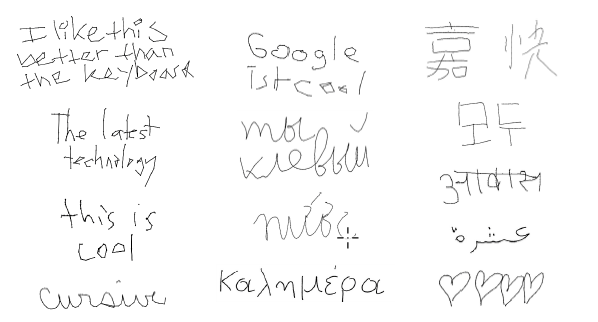 I like this
better than
the keyboard
The latest
technology
this is
cool
cursive
Google
ist cool
ты
клевый
Καλημέρα
嘉 快
모두
आवास
عشرة
♡♡♡♡